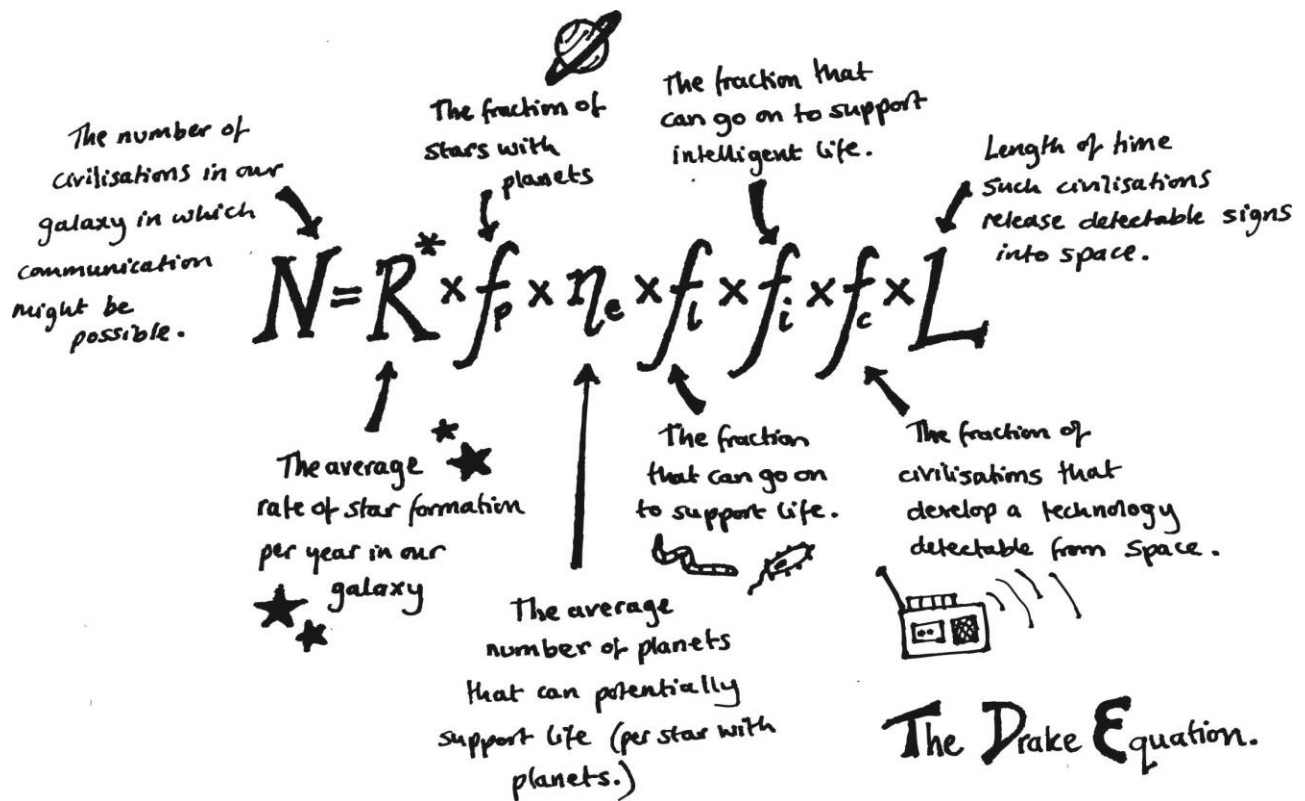 The number of
civilisations in our
galaxy in which
communication
might be
possible.
The fraction of
stars with
planets
The fraction that
can go on to support
intelligent life.
Length of time
such civilisations
release detectable signs
into space.
N=R*×fp×ηe×fl×fi×fc×L
The average
rate of star formation
per year in our
galaxy
The average
number of planets
that can potentially
support life (per star with
planets.)
The fraction
that can go on
to support life.
The fraction of
civilisations that
develop a technology
detectable from space.
The Drake Equation.